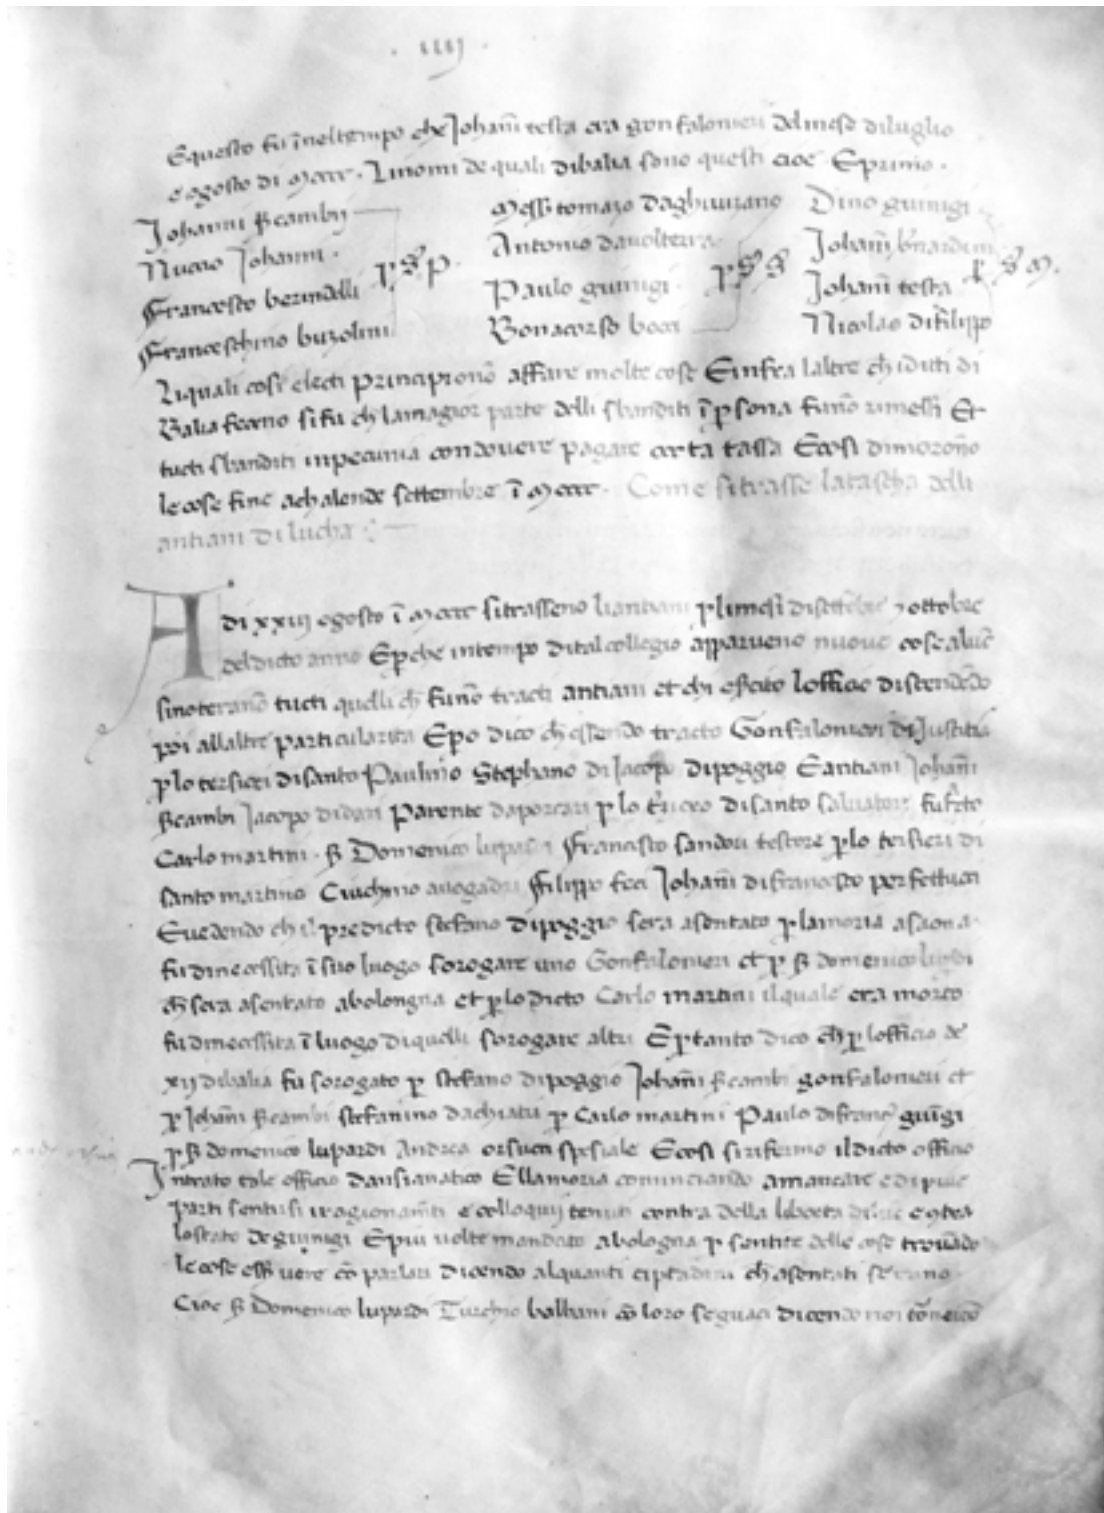 . iiij .
E questo fu ĩ nel tempo che Johañi testa era gonfalonieri del mese di luglio
e agosto di Mcccc. Li nomi de quali di balia sono questi cioe. E primo.
Johanni Scambij
Nuccio Johanni.
Francesco berindelli
Franceschino buzolini
p S P.
Mess tomazo da ghivizano
Antonio da volterra
Paulo guinigi
Bonacorso bocci
p S S
Dino guinigi
Johañi bñardini
Johañi testa
Nicolao di filippo
p S M.
Li quali cosi electi principionõ affare molte cose E infra laltre ch i dicti di
Balia feceno si fu ch la magior parte delli sbanditi ĩ psona funõ rimessi Et
tucti sbanditi in pecunia con dovere pagare certa tassa E cosi dimoronõ
le cose fine a chalende settembre ĩ Mcccc. Come si trasse la tascha delli
antiani di lucha
A di xxiij agosto ĩ Mcccc si trasseno li antiani p li mesi di settẽbre 7 ottobre
del dicto anno E pche in tempo di tal collegio apparveno nuove cose
si noteranõ tucti quelli ch funõ tracti antiani et chi esercito lofficio discendẽdo
poi allaltre particularita E po dico ch essendo tracto Gonfalonieri di Justitia
p lo tersieri di santo Paulino Stephano di Jacopo di poggio E antiani Johañi
Scambi Jacopo di dari Parente da porcari p lo di santo salvatore
Carlo martini. S Domenico lupardi Francesco sandori testore p lo tersieri di
santo martino Ciuchino avogadri Filippo feci Johañi di francesco perfettucci
E vedendo ch il predicto stefano di poggio sera asentato p la moria a saona
fu di necessita ĩ suo luogo sorogare uno Gonfalonieri et p S domenico lupardi
ch sera asentato a bolongna et p lo dicto Carlo martini il quale era morto
fu di necessita ĩ luogo di quelli sorogare altri E p tanto dico ch p lofficio de
xij di balia fu sorogato p stefano di poggio Johañi Scambi gonfalonieri et
p Johañi Scambi stefanino da chiatri p Carlo martini Paulo di franc guĩgi
p S domenico lupardi Andrea orsucci spesiale E cosi si rifermo il dicto officio
Intrato tale officio dansianatico E lla moria cominciando a mancare e di piue
parti sentirsi ragionamti e colloquij tenuti contra della liberta
lo stato de guinigi E piu volte mandato a bologna p sentire delle cose trovãdo
le cose esser vere cõ parlari dicendo alquanti ciptadini ch asentati serano
Cioe S Domenico lupardi Turchio balbani cõ loro seguaci dicendo noi